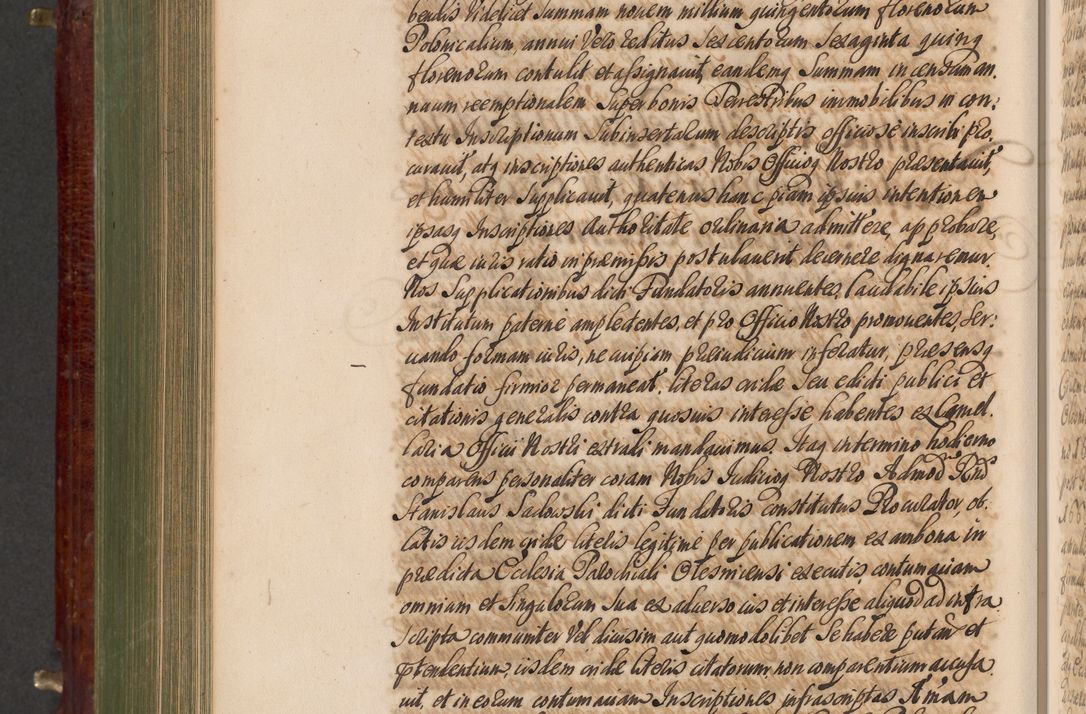 bendis Videlicet Summam novem millium quingentorum florenorum
Polonicalium, annui Vero reditus Sexcentorum Sexaginta quinq
florenorum contulit et assignavit, eandemq Summam in censum an,
nuum reemptionalem Super bonis Terrestribus immobilibus in con,
textu Inscriptionum Subinsertarum descriptis officiose inscribi pro,
curavit, atq inscriptiones authenticas Nobis Officioq Nostro præsentavit,
et humiliter Supplicavit, quatenus hanc piam ipsius intentionem
ipsasq Inscriptiones Authoritate ordinaria admittere, approbare,
et quæ iuris ratio in præmissis postulaverit decernere dignaremur.
Nos Supplicationibus dicti Fundatoris annuentes, laudabile ipsius
Institutum paterne amplectentes, et pro Officio Nostro promoventes, Ser,
vando formam iuris, ne cuipiam præiudicium inferatur, præsensq
fundatio firmior permaneat, literas cridæ Seu edicti publici et
citationis generalis contra quosvis interesse habentes ex Cancel,
laria Officii Nostri extrahi mandavimus. Itaq in termino hodierno
comparens personaliter coram Nobis Iudicioq Nostro Admod Rnd
Stanislaus Sadowski dicti Fundatoris constitutus Procurator, ob,
latis iisdem cridæ literis legitime per publicationem ex ambona in
prædicta Ecclesia Parochiali Olesnicensi executis, contumaciam
omnium et Singulorum Sua ex adverso ius et interesse aliquod ad infra
scripta communiter Vel divisim aut quomodolibet Se habere putan et
ptendentium, iisdem cridæ literis citatorum, non comparentium accusa
vit, et in eorum contumaciam Inscriptiones infrascriptas